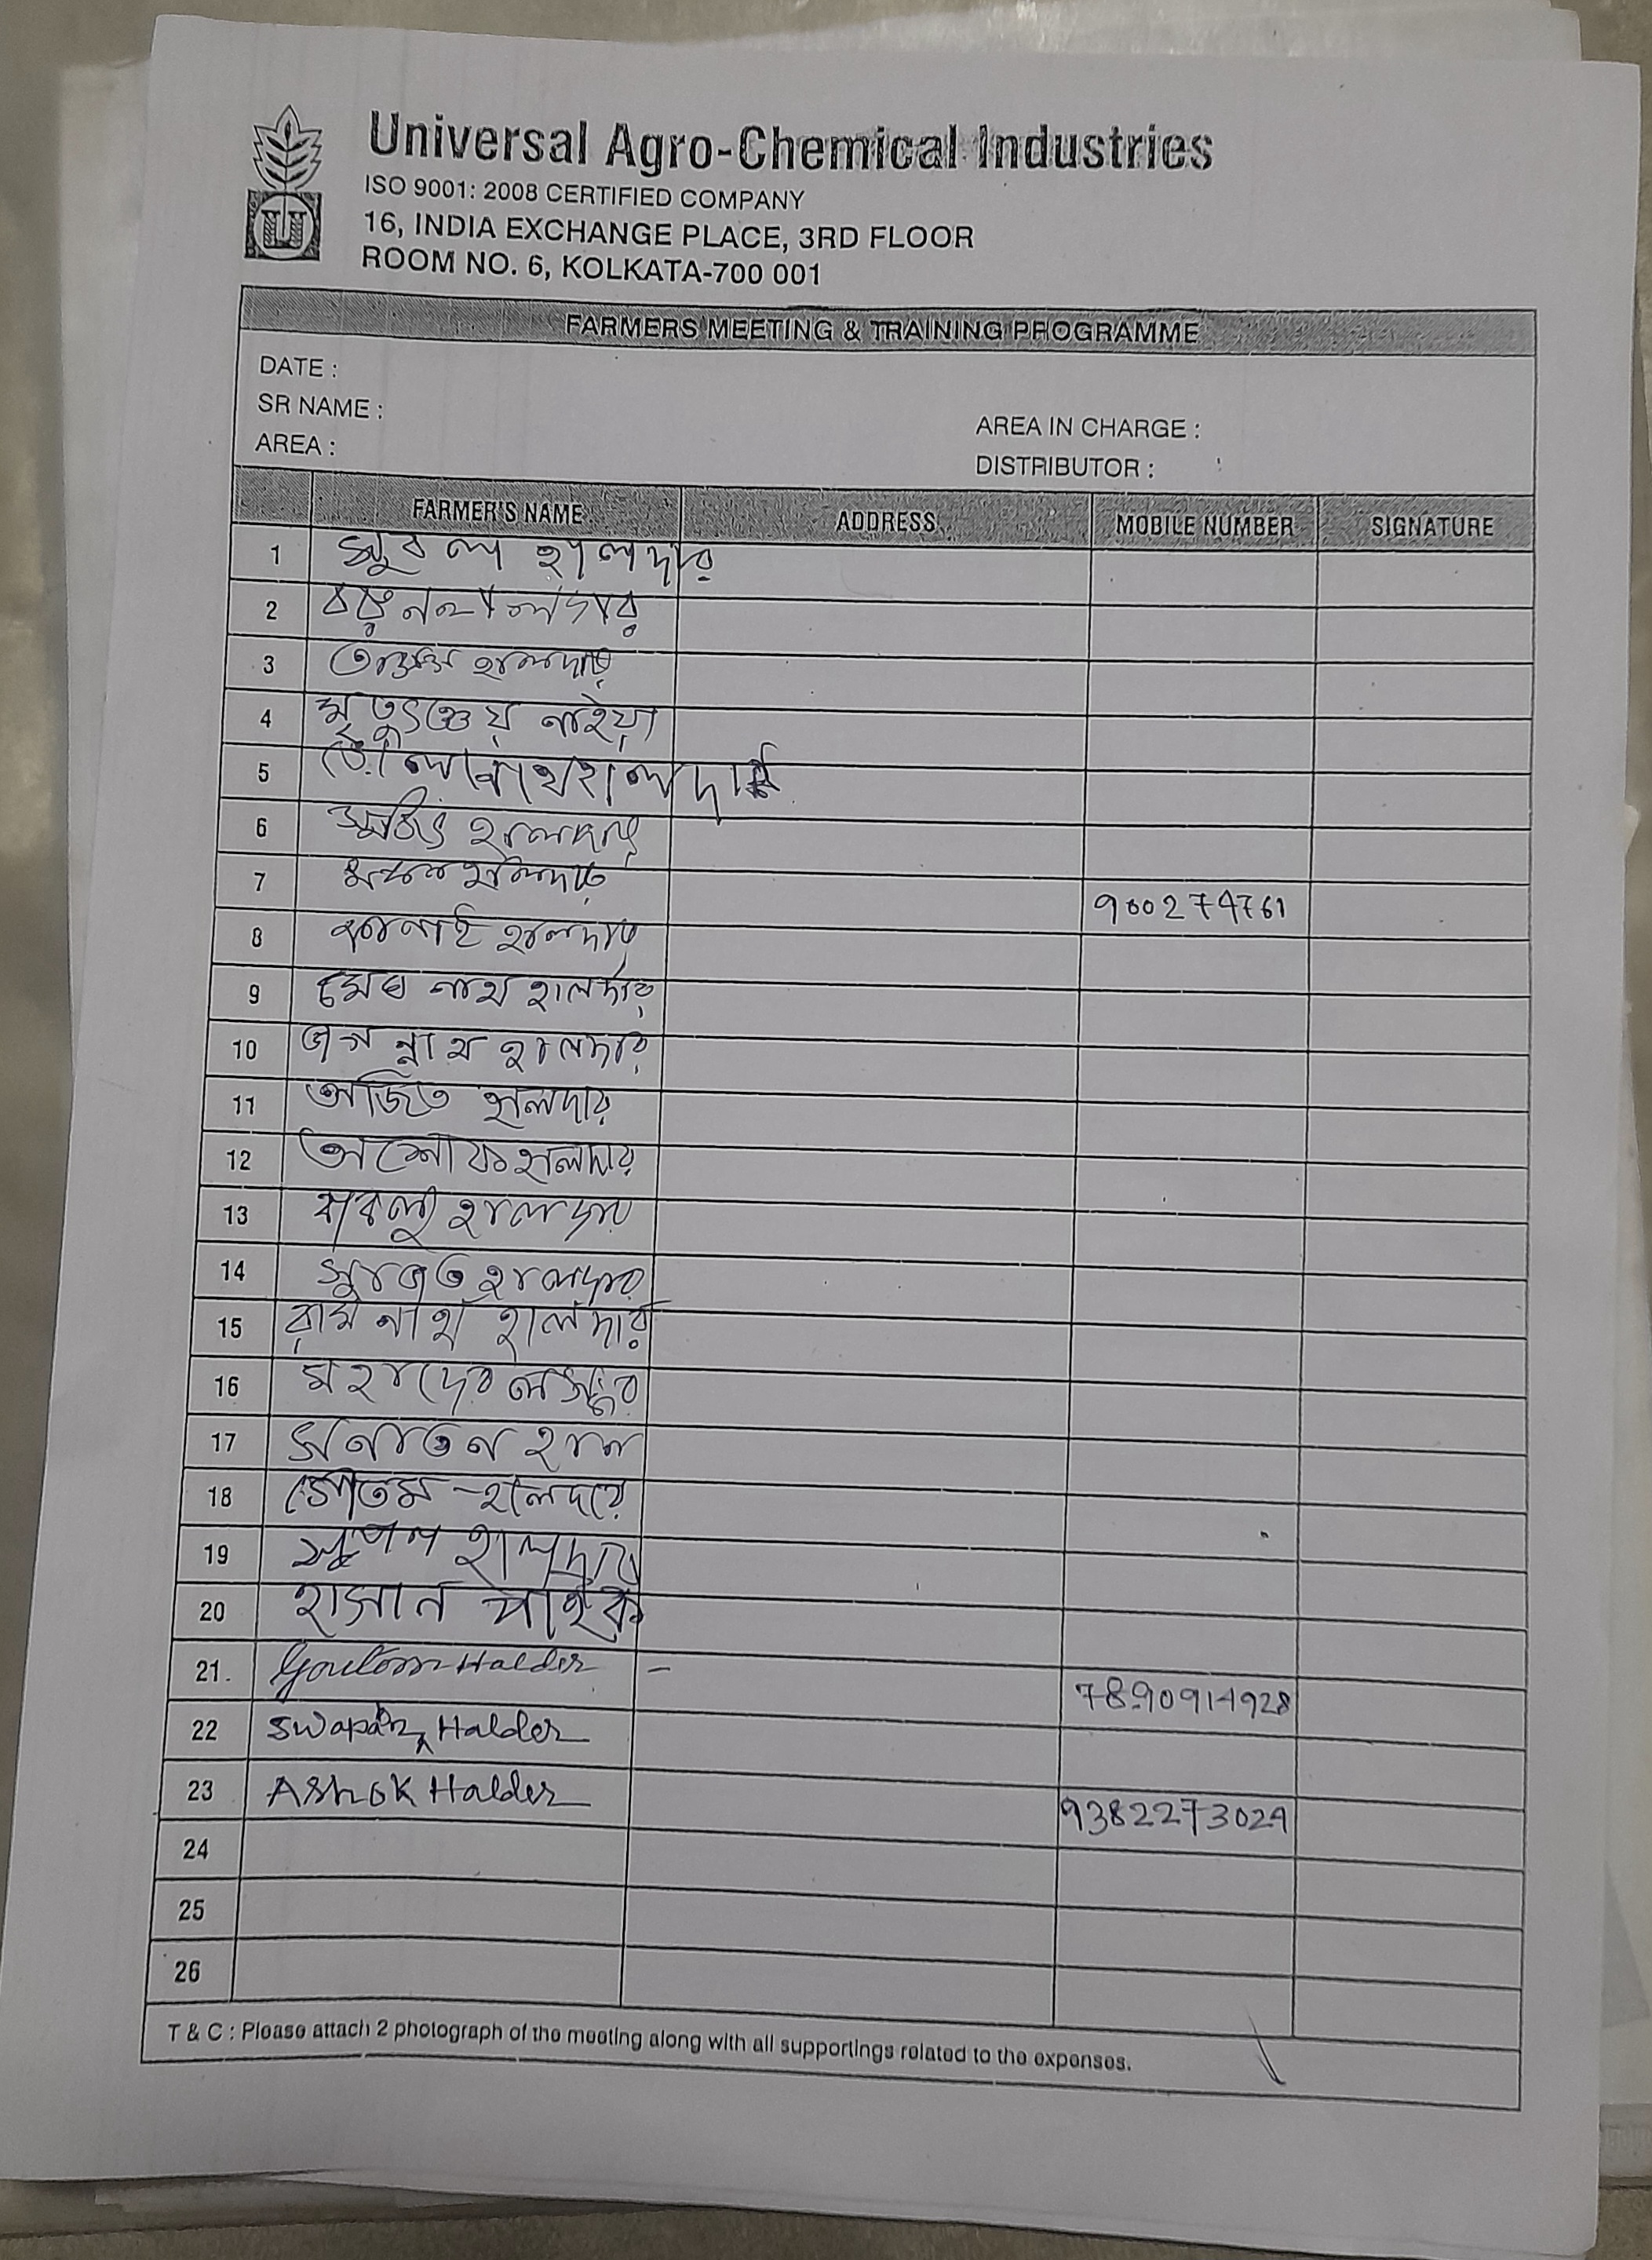 Universal Agro-Chemical Industries
ISO 9001: 2008 CERTIFIED COMPANY
16, INDIA EXCHANGE PLACE, 3RD FLOOR
ROOM NO. 6, KOLKATA-700 001
U
FARMERS'MEETING & TRAINING PROGRAMME
DATE :
SR NAME :
AREA IN CHARGE :
AREA :
DISTRIBUTOR :
FARMER'S NAME ADDRESS MOBILE NUMBER SIGNATURE
1 সুবল হালদার
2 বরুন হালদার
3 হালদার
4 মৃত্যুঞ্জয় নাইয়া
5 ভোলানাথ হালদার
6 হালদার
7 হালদার 900274761
8 হালদার
9 মেঘনাথ হালদার
10 জগন্নাথ হালদার
11 অজিত হালদার
12 অশোক হালদার
13 বাবলু হালদার
14 সুজাত হালদার
15 রামনাথ হালদার
16 মহাদেব লস্কর
17 সনাতন হাল
18 গৌতম হালদার
19 হালদার
20 হাসান পাইক
21. Goutom Halder - 7890914928
22 Swapan Halder
23 Ashok Halder 9382273024
24
25
26
T & C : Please attach 2 photograph of the meeting along with all supportings related to the expenses.